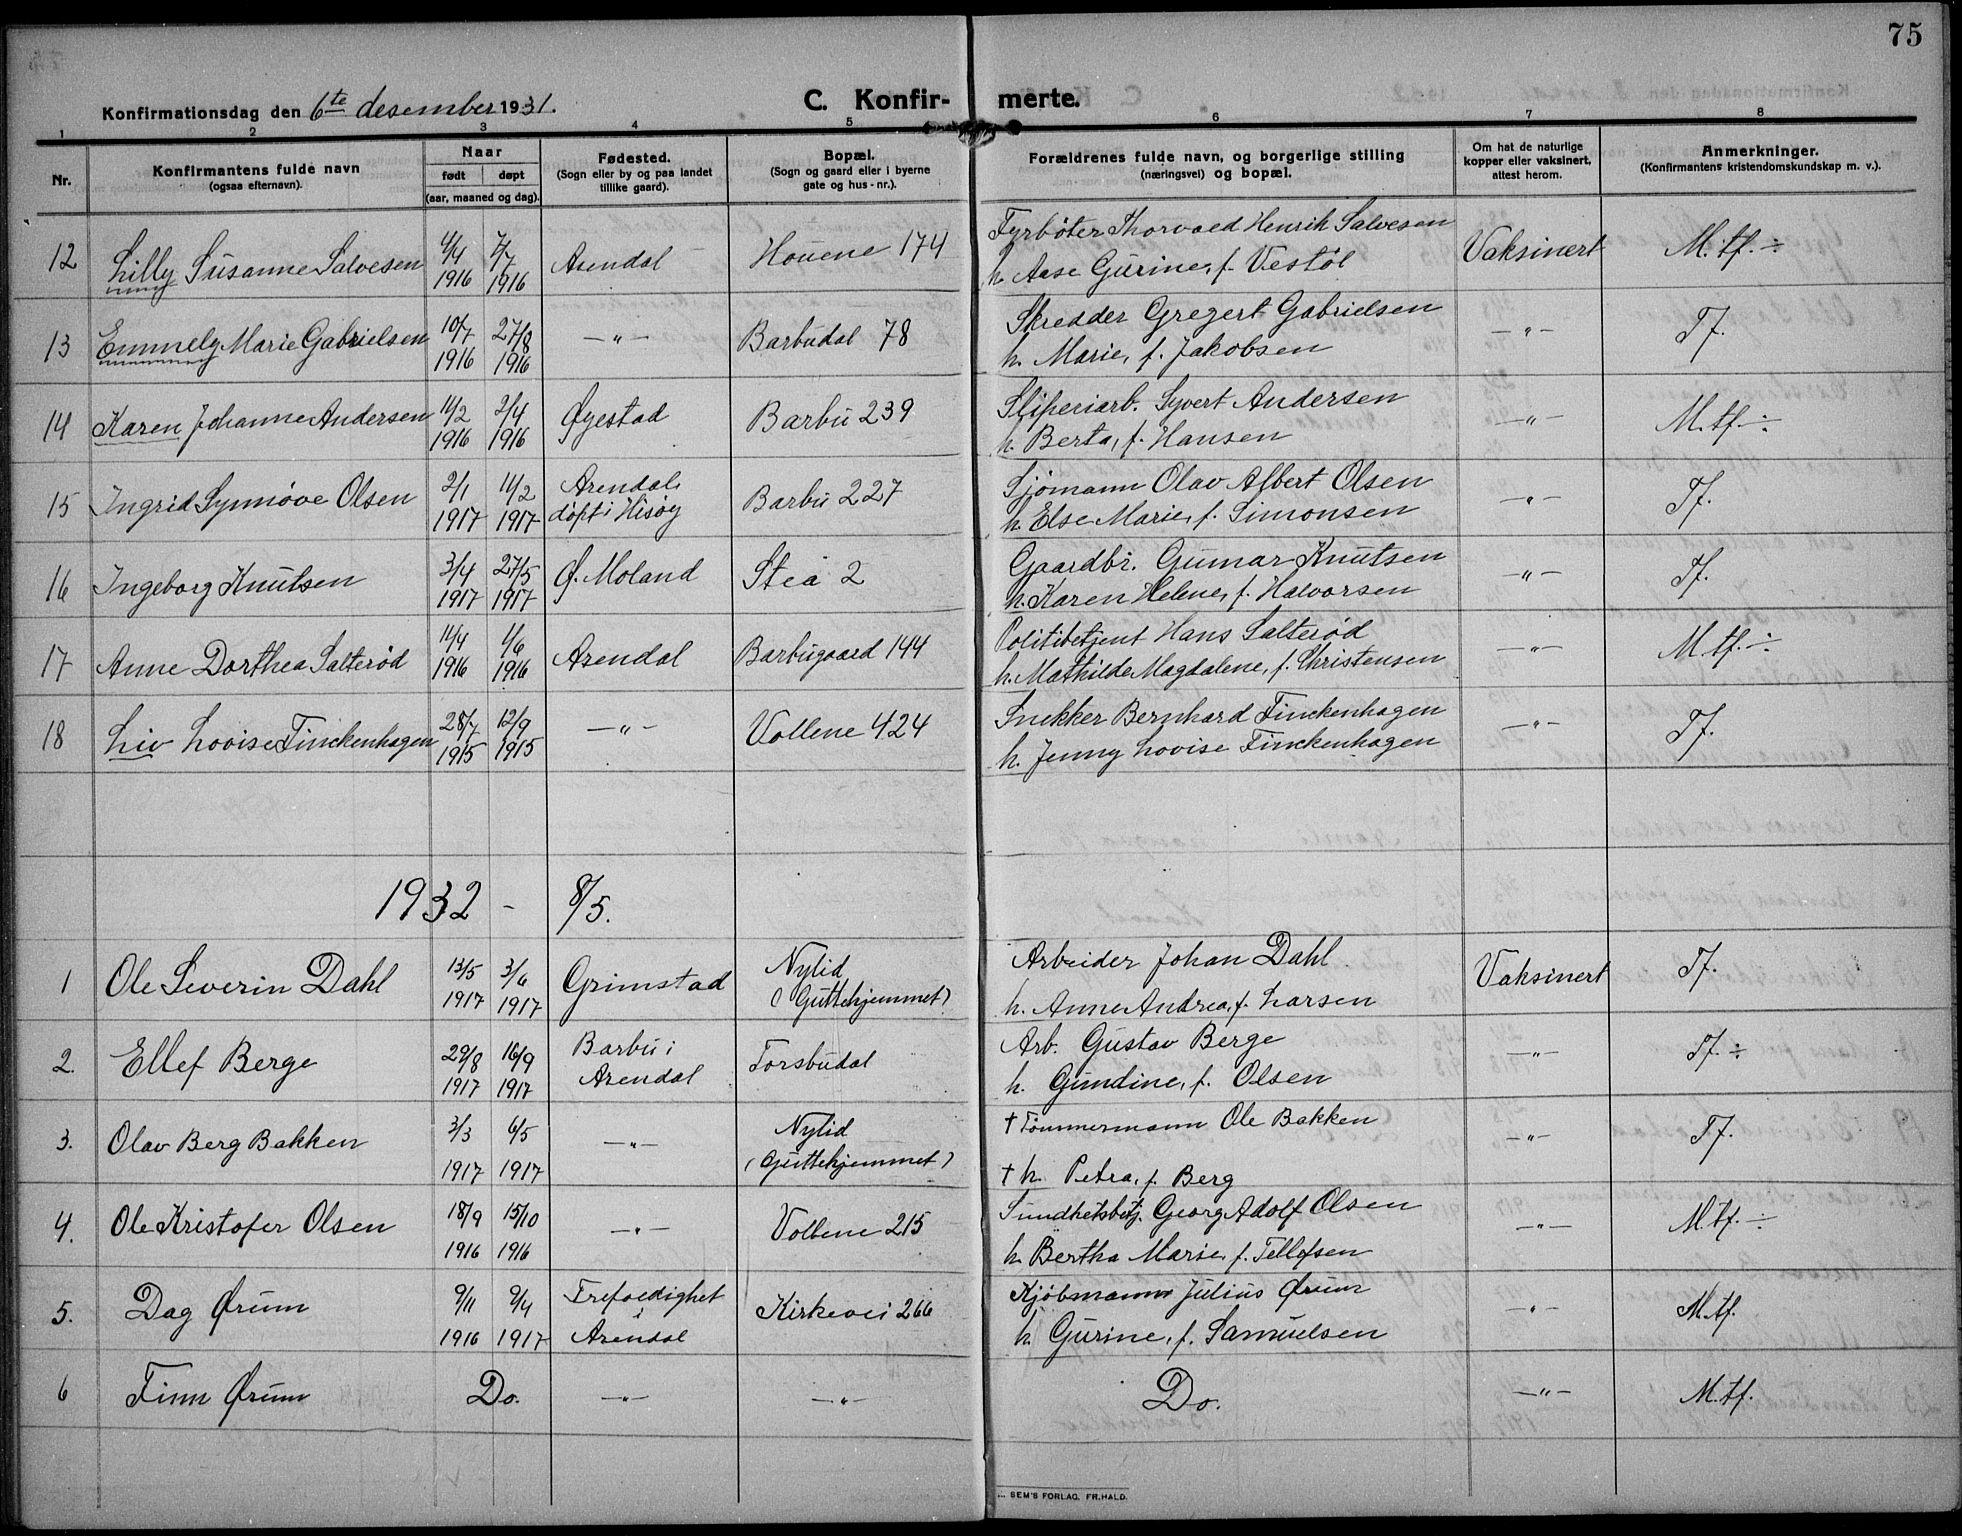 75
Konfirmationsdag den 6te desember 1931.
C. Konfir- merte.
1 2 3 4 5 6 7 8
Nr.
Konfirmantens fulde navn
(ogsaa efternavn).
Naar
født døpt
(aar, maaned og dag).
Fødested.
(Sogn eller by og paa landet
tillike gaard).
Bopæl.
(Sogn og gaard eller i byerne
gate og hus-nr.).
Forældrenes fulde navn, og borgerlige stilling
(næringsvei) og bopæl.
Om hat de naturlige
kopper eller vaksinert,
attest herom.
Anmerkninger.
(Konfirmantens kristendomskundskap m. v.).
12 Lilly Susanne Salvesen 4/4 1916 7/7 1916 Arendal Houene 174 Fyrbøter Thorvald Henrik Salvesen
h. Aase Gurine, f. Vestøl Vaksinert M.tf. ÷
13 Emmely Marie Gabrielsen 10/7 1916 27/8 1916 —"— Barbudal 78 Skredder Gregert Gabrielsen
h. Marie, f. Jakobsen —"— Tf.
14 Karen Johanne Andersen 11/2 1916 2/4 1916 Øyestad Barbu 239 Sliperiarb. Syvert Andersen
h. Berta, f. Hansen —"— M.tf. ÷
15 Ingrid Synnøve Olsen 2/1 1917 11/2 1917 Arendal,
døpt i Hisøy Barbu 227 Sjømann Olav Albert Olsen
h. Else Marie, f. Simonsen —"— Tf.
16 Ingeborg Knutsen 3/4 1917 27/5 1917 Ø. Moland Stea 2 Gaardbr. Gunnar Knutsen
h. Karen Helene, f. Halvorsen —"— Tf.
17 Anne Dorthea Salterød 11/4 1916 1/6 1916 Arendal Barbugaard 144 Politibetjent Hans Salterød
h. Mathilde Magdalene, f. Christensen —"— M.tf. ÷
18 Liv Lovise Finckenhagen 28/7 1915 12/9 1915 —"— Vollene 424 Snekker Bernhard Finckenhagen
h. Jenny Lovise Finckenhagen —"— Tf.
1932 - 8/5.
1 Ole Severin Dahl 13/5 1917 3/6 1917 Grimstad Nylid
(Guttehjemmet) Arbeider Johan Dahl.
h. Anne Andrea, f. Larsen Vaksinert Tf.
2. Ellef Berge 29/8 1917 16/9 1917 Barbu i
Arendal Torsbudal Arb. Gustav Berge
h. Gundine, f. Olsen —"— Tf. ÷
3. Olav Berg Bakken 3/3 1917 6/5 1917 —"— Nylid
(Guttehjemmet) † Tømmermann Ole Bakken
† h. Petra, f. Berg —"— Tf.
4. Ole Kristofer Olsen 18/9 1916 15/10 1916 —"— Vollene 215 Sundhetsbetj. Georg Adolf Olsen
h. Bertha Marie, f. Tellefsen —"— M.tf. ÷
5. Dag Ørum 9/11 1916 9/4 1917 Trefoldighet
Arendal Kirkevei 266 Kjøbmann Julius Ørum
h. Gurine, f. Samuelsen —"— M.tf.
6 Finn Ørum Do. —"— —"— Do. —"— M.tf.
SEM'S FORLAG, FR.HALD.